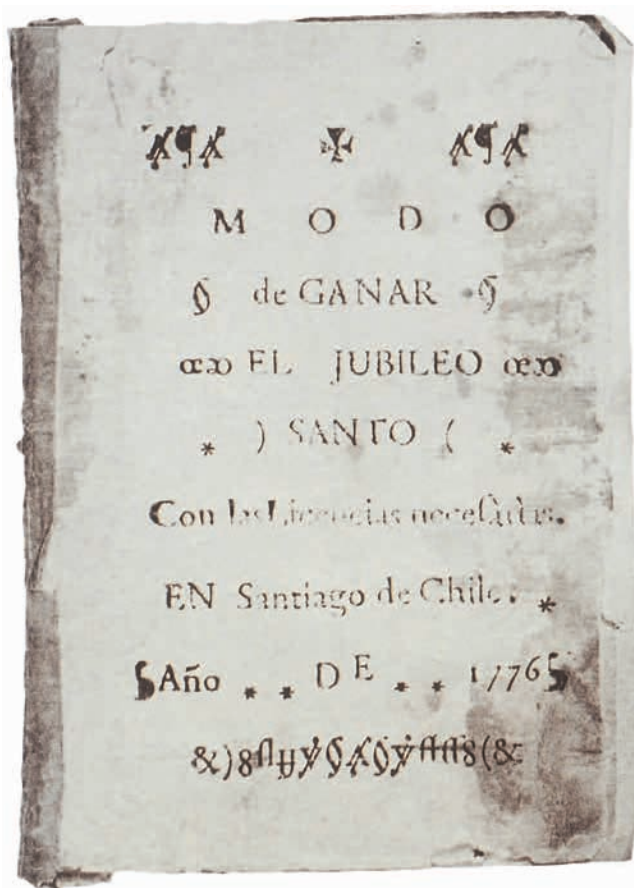 M O D O
de GANAR
EL JUBILEO
* ) SANTO ( *
Con las Licencias necesſarias.
EN Santiago de Chile. *
Año * * DE * * 1776